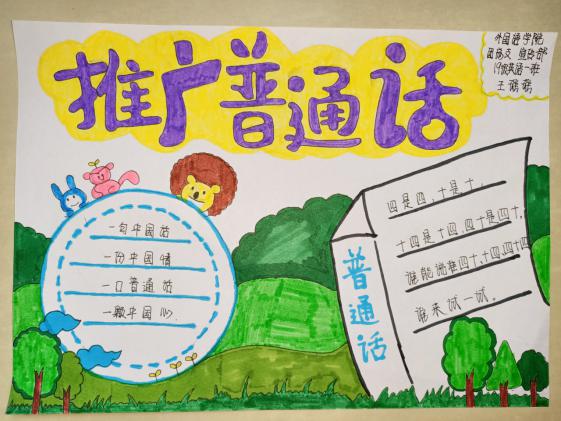 推广普通话
外国语学院
团扬文 宣政部
19级英语一班
王
一句中国话
一份中国情
一口普通话
一颗中国心.
普通话
四是四,十是十,
十四是十四,四十是四十,
谁能说准四十,十四,四十四
谁来试一试。